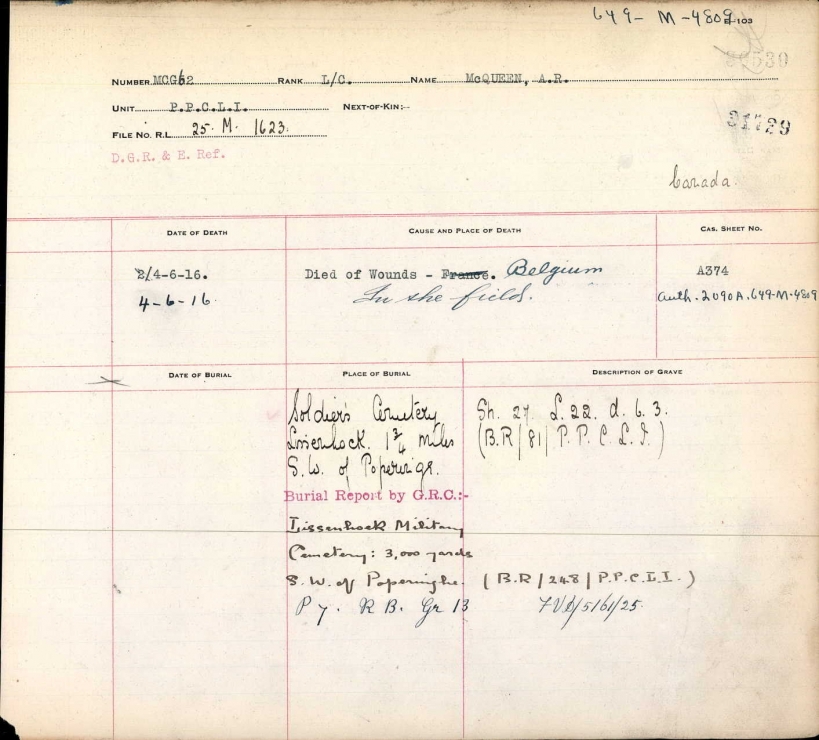 649-M-4809
E-103
530
NUMBER MCG62 RANK L/C. NAME McQUEEN, A.R.
UNIT P.P.C.L.I. NEXT-OF-KIN:-
FILE NO. R.L. 25. M. 1623.
31729
D.G.R. & E. Ref.
Canada.
DATE OF DEATH CAUSE AND PLACE OF DEATH CAS. SHEET NO.
2/4-6-16. Died of Wounds - France. Belgium A374
4-6-16. In the field. Auth. 2090A.649-M-4809
DATE OF BURIAL PLACE OF BURIAL DESCRIPTION OF GRAVE
Soldier's Cemetery Sh. 27. L. 22. d. 6. 3.
Lissenhock. 1 3/4 miles (B.R/81/P.P.C.L.I.)
S.W. of Poperinge.
Burial Report by G.R.C.:-
Lissenhoek Military
Cemetery: 3,000 yards
S.W. of Poperinghe. (B.R/248/P.P.C.L.I.)
P 7. R B. Gr 13